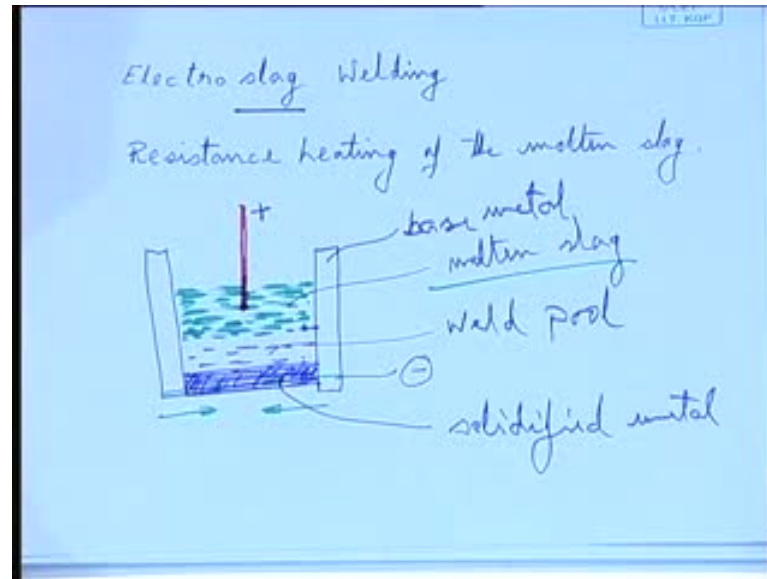 IIT KGP
Electro slag Welding
Resistance heating of the molten slag.
+
base metal
molten slag
weld pool
-
solidified metal